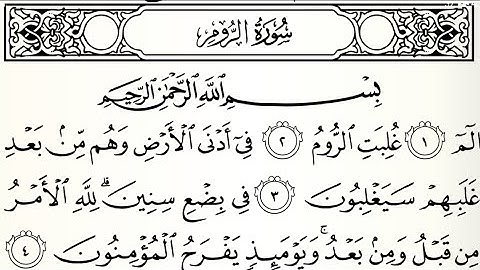 سُورَةُ الرُّومِ
بِسْمِ اللَّهِ الرَّحْمَٰنِ الرَّحِيمِ
الٓمٓ ۝١ غُلِبَتِ ٱلرُّومُ ۝٢ فِىٓ أَدْنَى ٱلْأَرْضِ وَهُم مِّنۢ بَعْدِ
غَلَبِهِمْ سَيَغْلِبُونَ ۝٣ فِى بِضْعِ سِنِينَ ۗ لِلَّهِ ٱلْأَمْرُ
مِن قَبْلُ وَمِنۢ بَعْدُ ۚ وَيَوْمَئِذٍ يَفْرَحُ ٱلْمُؤْمِنُونَ ۝٤